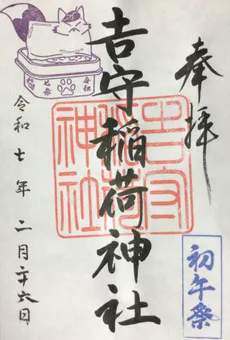 奉拝
初午祭
吉守稲荷神社
吉守稲荷神社
令和七年二月二十六日